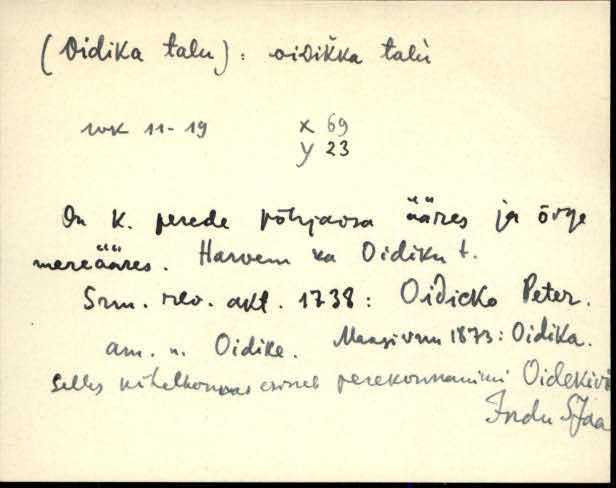 (Oidika talu): oidikka talù
wk 11-19 x 69
y 23
On k. perede põhjaosa ääres ja õige
mereääres. Harvem ka Oidiku t.
Srm. rev. akt. 1738: Oidicko Peter.
am. n. Oidike. Maagivum 1873: Oidika.
Selles kihelkonnas esineb perekonnanimi Oidekivi
Indu